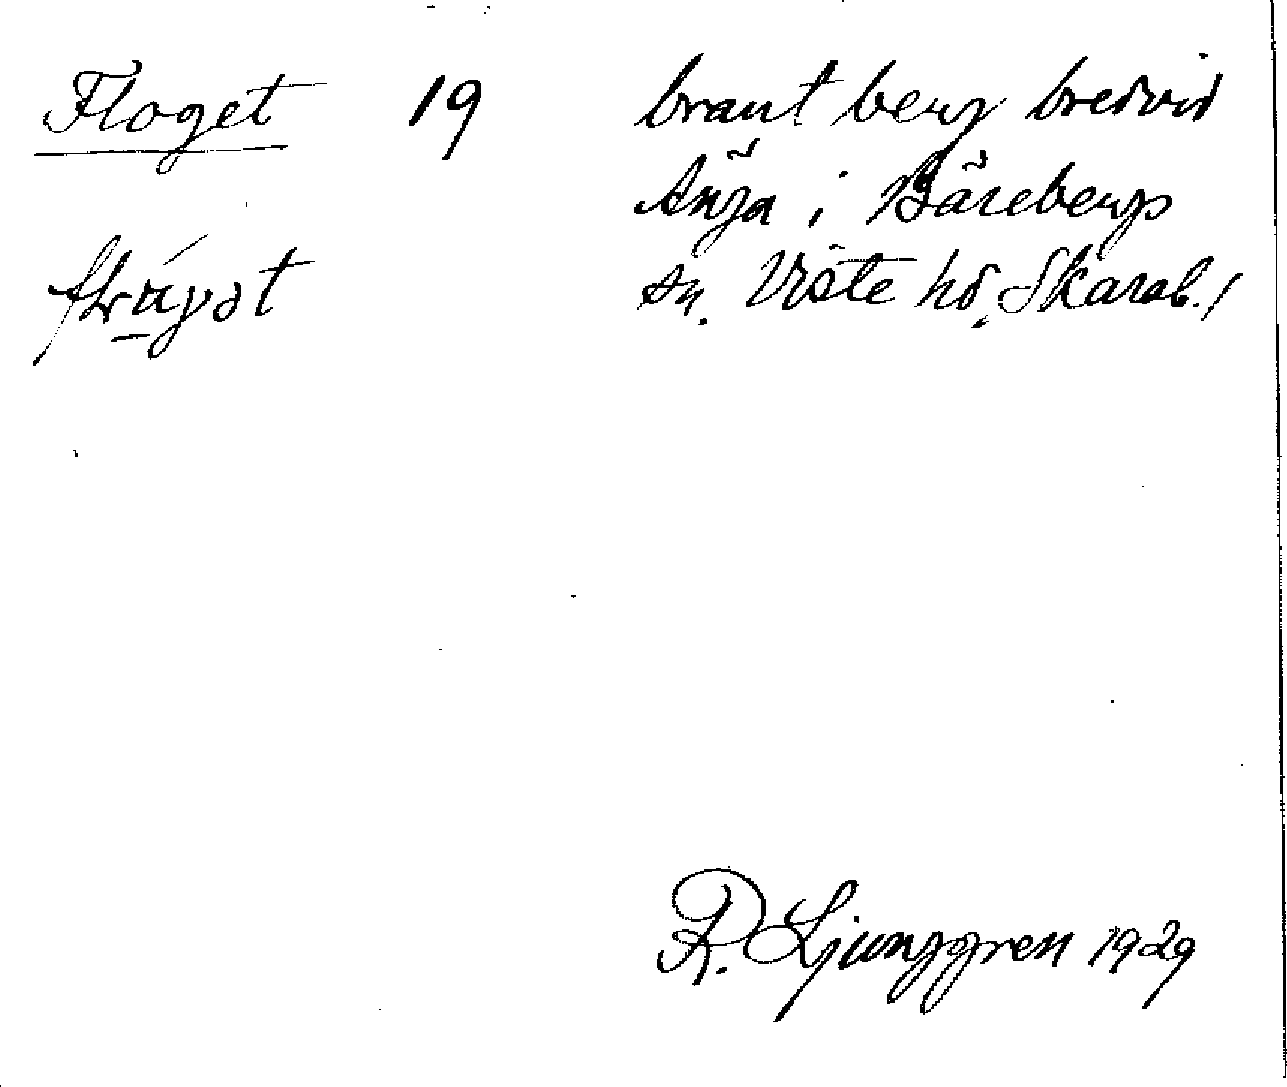 Floget 19 brant berg bredvid
Änga i Bärebergs
sn. Viste hd. Skarab. l
R. Ljunggren 1929